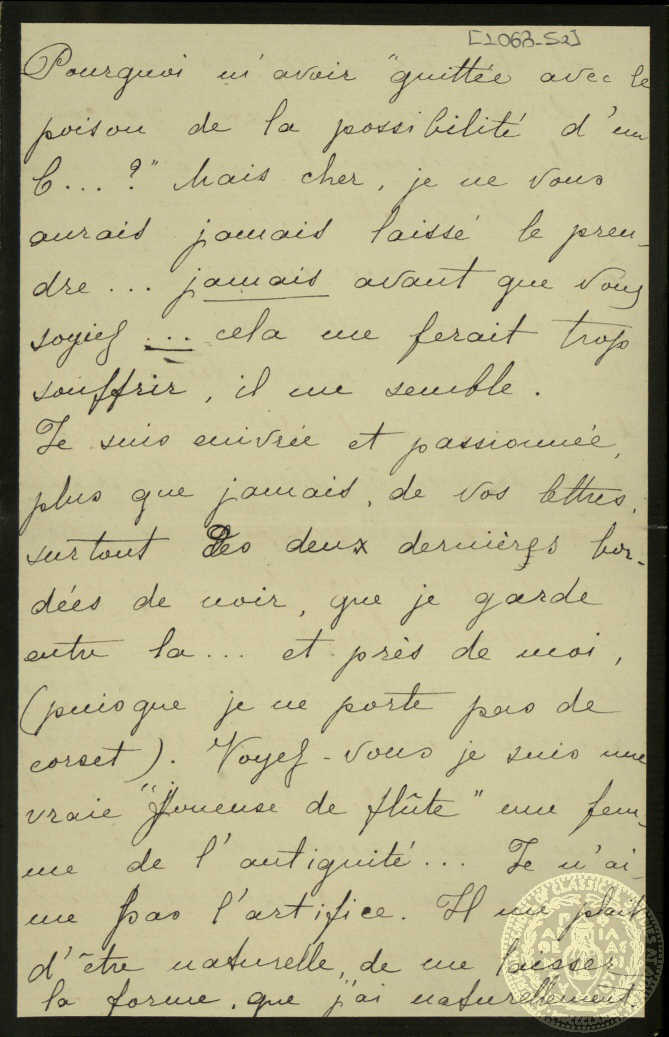 [1063-52]
Pourquoi m'avoir "quittée avec le
poison de la possibilité d'un
b...?" Mais cher, je ne vous
aurais jamais laissé le pren-
dre ... jamais avant que vous
soyiez ... cela me ferait trop
souffrir, il me semble.
Je suis enivrée et passionnée,
plus que jamais, de vos lettres,
surtout des deux dernières bor-
dées de noir, que je garde
entre la ... et près de moi,
(puisque je ne porte pas de
corset). Voyez-vous je suis une
vraie "Joueuse de flûte" une fem-
me de l'antiquité ... Je n'ai-
me pas l'artifice. Il me plait
d'être naturelle, de me laisser
la forme, que j'ai naturellement.